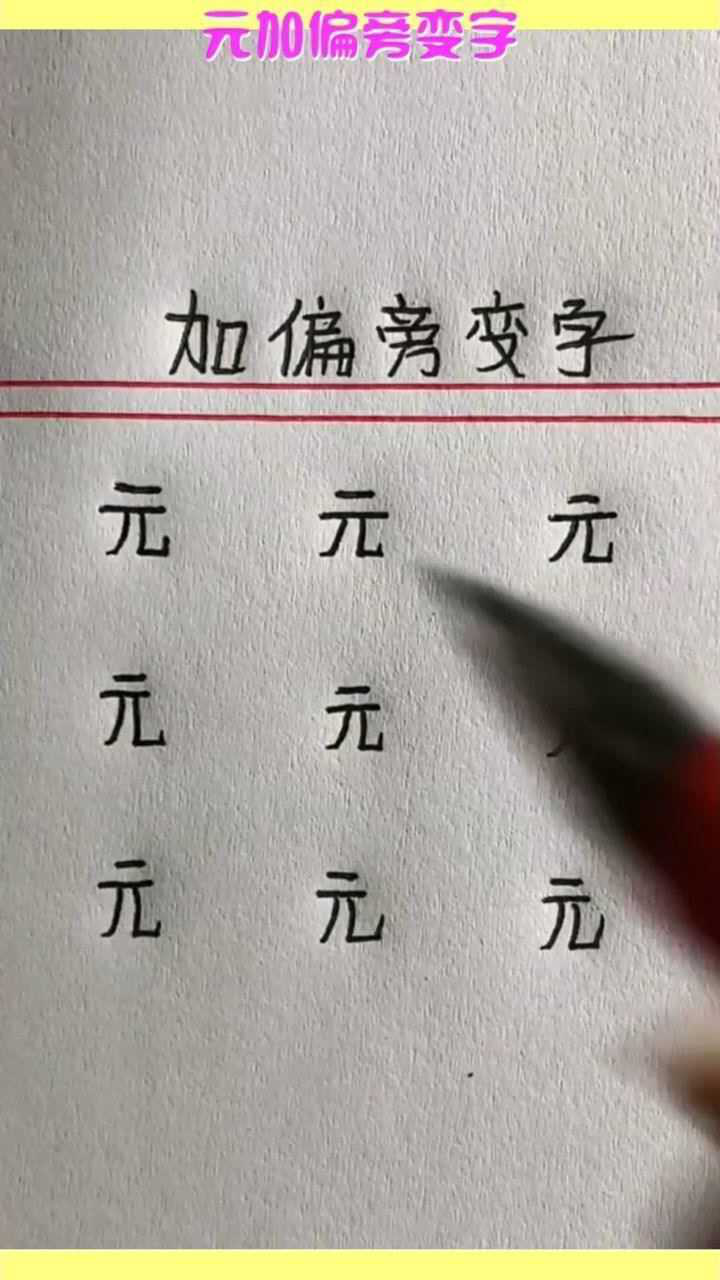 元加偏旁变字
加偏旁变字
元 元 元
元 元
元 元 元